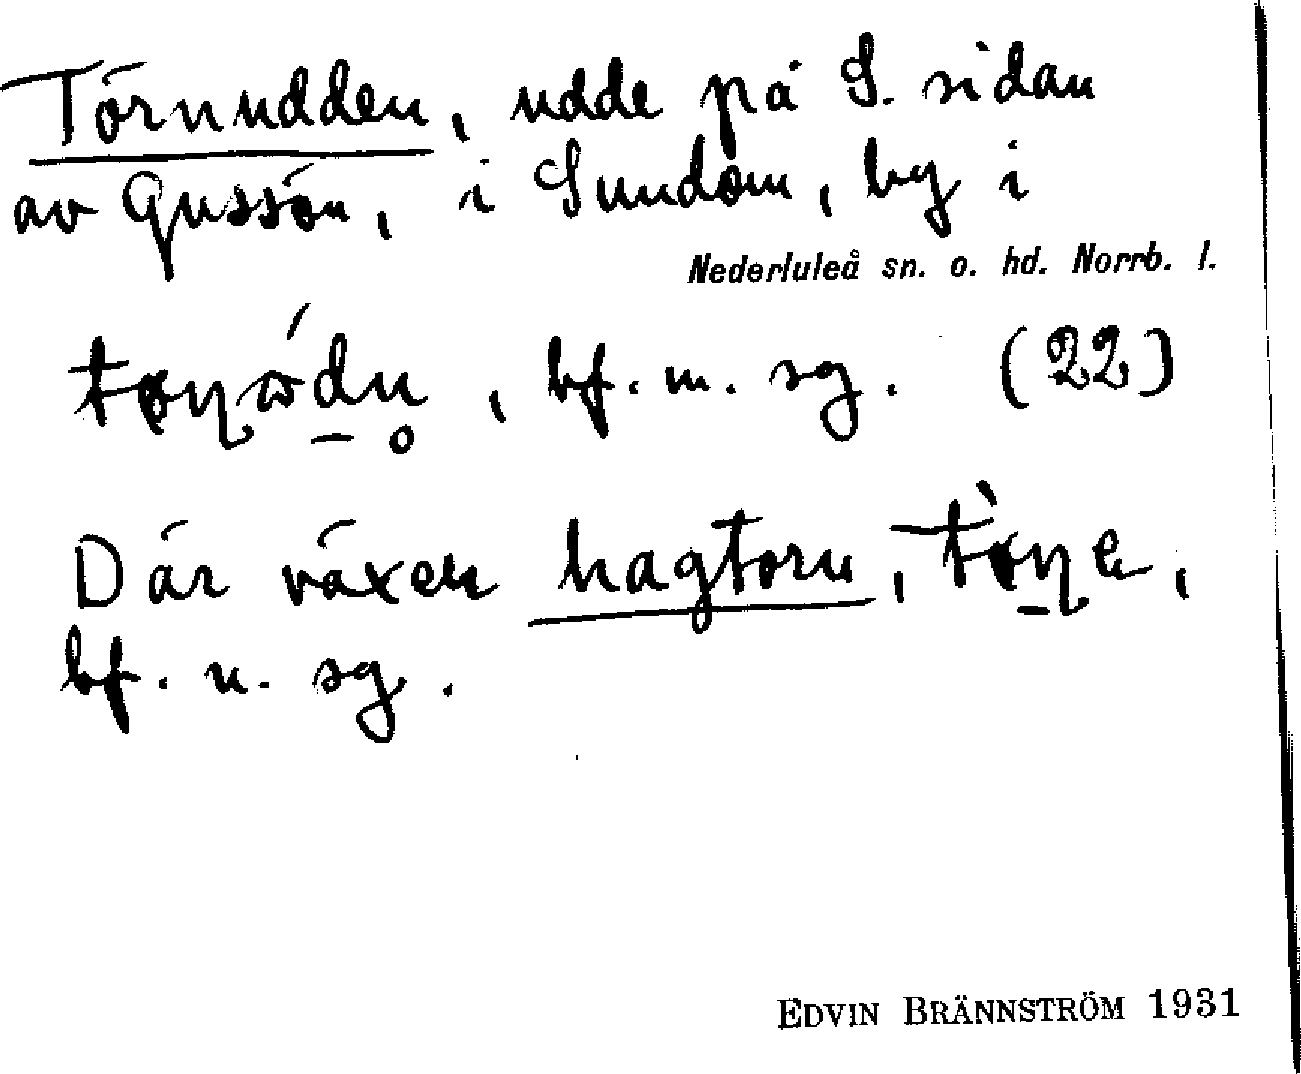 Törnudden, udde på S. sidan
av Gussön, i Sundom, by i
Nederluleå sn. o. hd. Norrb. l.
, bf. m. sg. (22)
Där växer hagtorn,
bf. n. sg.
EDVIN BRÄNNSTRÖM 1931